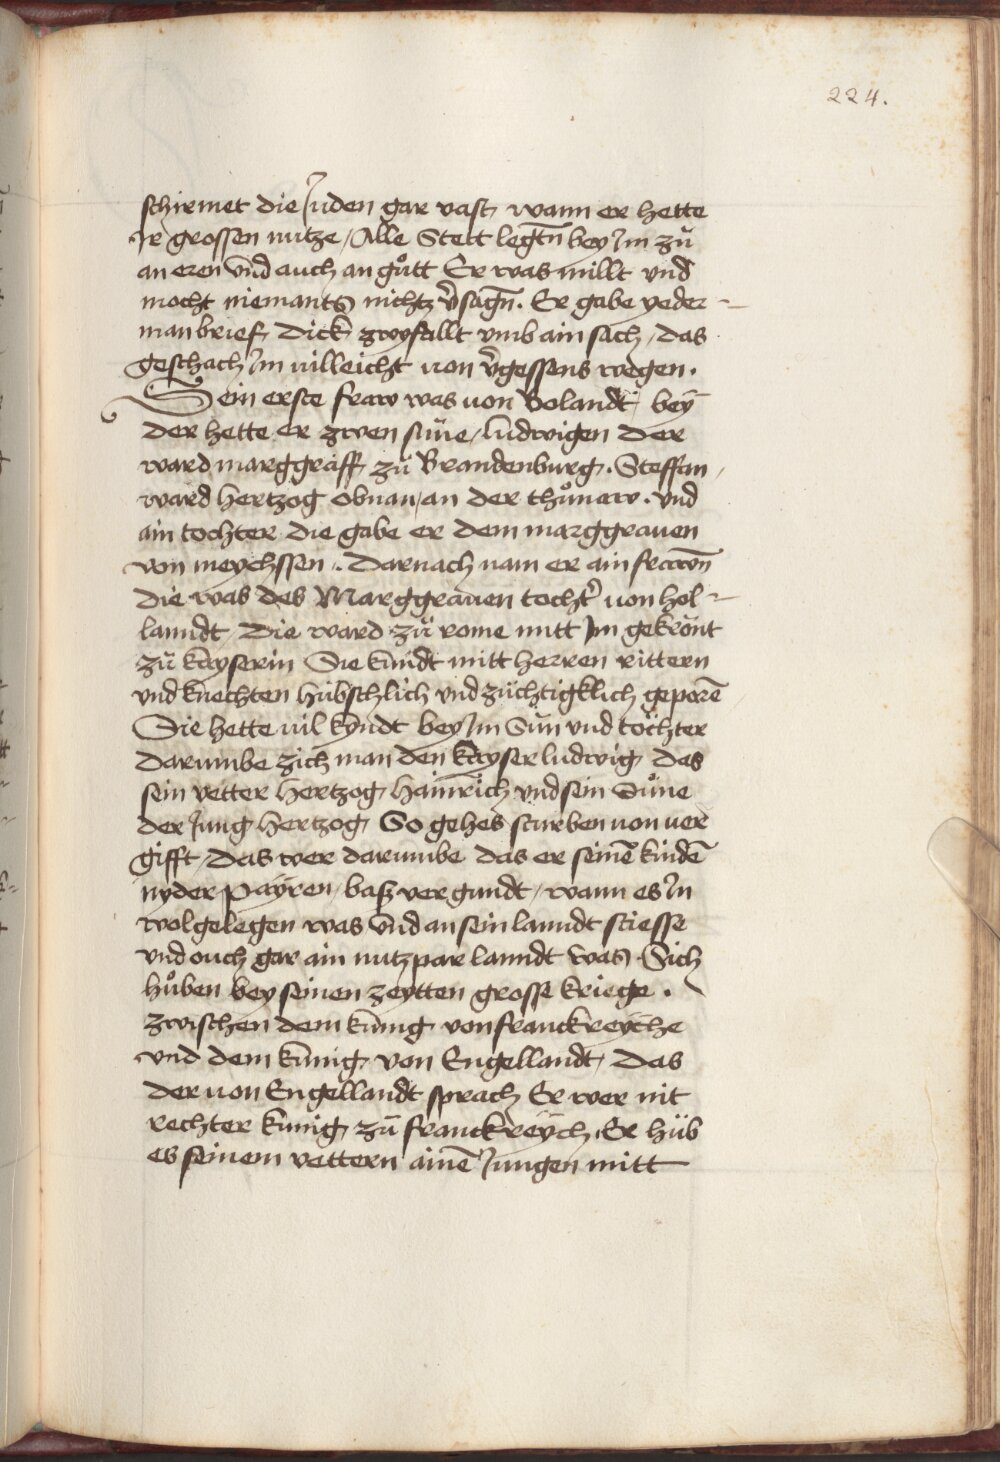 224.
schirmet die Juden gar vast wann er hette
Ir grossen nutze / Alle Stett legtn̄ bey Im zů
an eren vnd auch an gůtt Er was millt vnd
mocht niemants nichtz v̉sagn̄. Er gabe yeder-
man brief dick zwyfallt vmb ain sach / das
geschach Im villeicht von v̉gessens wegen.
Sein erste fraw was von Bolandt bey
der hette er zwen süne / ludwigen der
ward marggraff zů Brandenburg. Steffan
ward hertzog obnan / an der thůnaw. vnd
ain tochter die gabe er dem marggrauen
von meychssen. Darnach nam er ain frawn̄
die was des Marggrauen tocht̉ von hol-
lanndt die ward zů rome mitt Im gekrönt
zů kayserin Sie kundt mitt herren rittern
vnd knechten hübschlich vnd züchtigklich geporē
Sie hette vil kyndt bey Im Sün vnd töchter
darumbe zich man den kayser ludwig das
sein vetter hertzog hainrich vnd sein Süne
der Jung hertzog So gehes sturben von ver
gifft / Das wer darumbe das er seinē kindē
nyder payren / basz vergundt / wann es In
wolgelegen was vnd an sein lanndt stiesse
vnd ouch gar ain nutzpar lanndt was Sich
hůben bey seinen zeytten grosse kriege.
zwischen dem künig von franckreyche
vnd dem künig von Engellandt das
der von Engellandt sprach Er wer nit
rechter künig zů franckreych Er hüb
es seinem vettern ainē Jungen mitt